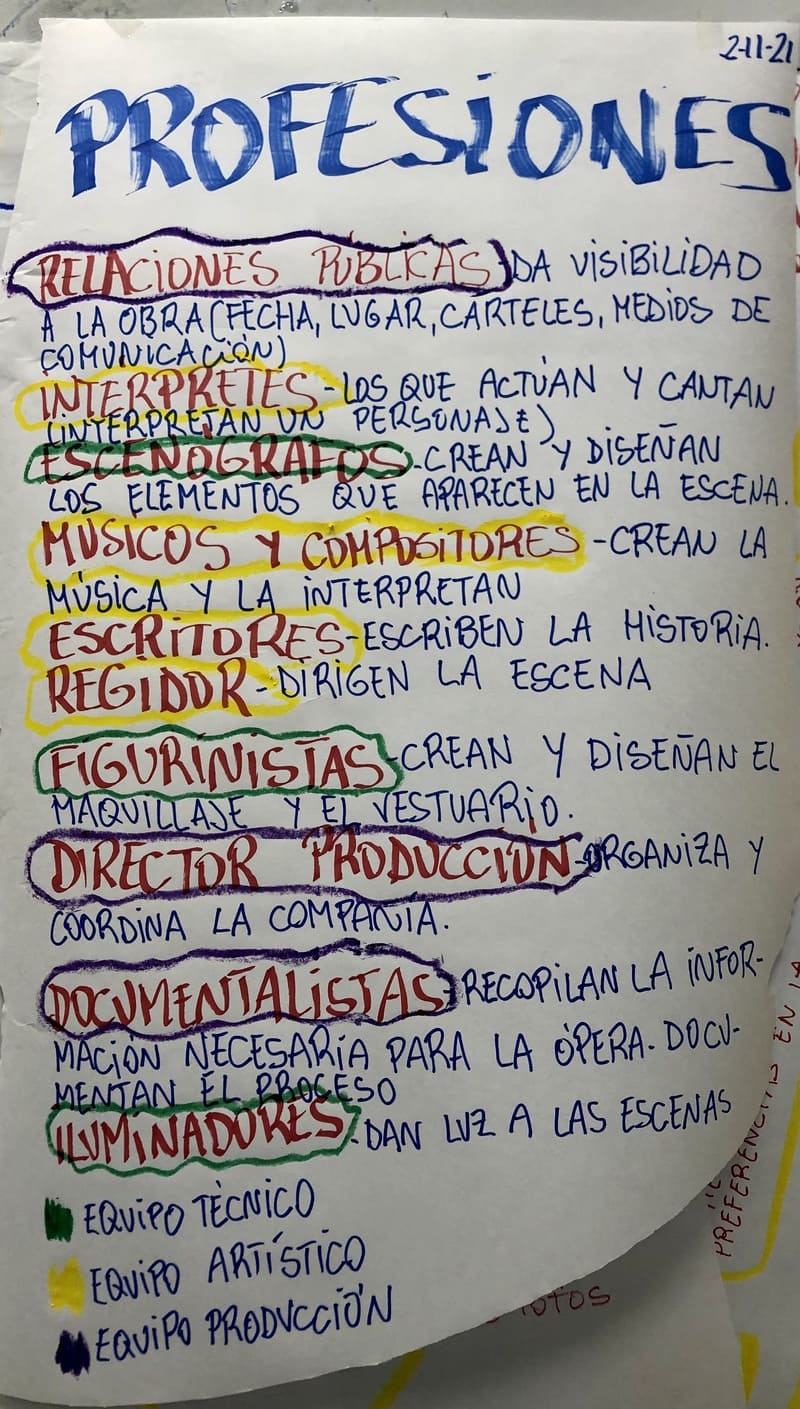 2-11-21
PROFESIONES
RELACIONES PÚBLICAS DA VISIBILIDAD
A LA OBRA (FECHA, LUGAR, CARTELES, MEDIOS DE
COMUNICACIÓN)
INTERPRETES - LOS QUE ACTÚAN Y CANTAN
(INTERPRETAN UN PERSONAJE)
ESCENOGRAFOS - CREAN Y DISEÑAN
LOS ELEMENTOS QUE APARECEN EN LA ESCENA.
MUSICOS Y COMPOSITORES - CREAN LA
MÚSICA Y LA INTERPRETAN
ESCRITORES - ESCRIBEN LA HISTORIA.
REGIDOR - DIRIGEN LA ESCENA
FIGURINISTAS - CREAN Y DISEÑAN EL
MAQUILLAJE Y EL VESTUARIO.
DIRECTOR PRODUCCIÓN - ORGANIZA Y
COORDINA LA COMPAÑÍA.
DOCUMENTALISTAS - RECOPILAN LA INFOR-
MACIÓN NECESARIA PARA LA ÓPERA. DOCU-
MENTAN EL PROCESO
ILUMINADORES - DAN LUZ A LAS ESCENAS
EQUIPO TÉCNICO
EQUIPO ARTÍSTICO
EQUIPO PRODUCCIÓN
PREFERENCIAS EN LA